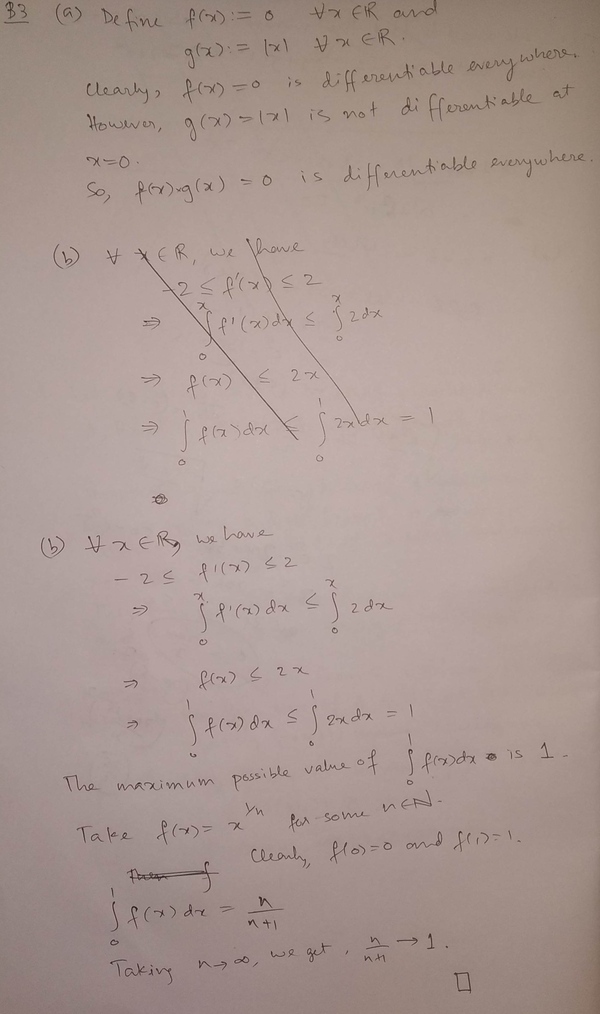 B3 (a) Define f(x) := 0 ∀x ∈ ℝ and
g(x) := |x| ∀ x ∈ ℝ.
Clearly, f(x) = 0 is differentiable everywhere.
However, g(x) = |x| is not differentiable at
x=0.
So, f(x).g(x) = 0 is differentiable everywhere.
(b) ∀ x ∈ ℝ, we have
-2 ≤ f'(x) ≤ 2
⇒ ∫_0^x f'(x) dx ≤ ∫_0^x 2 dx
⇒ f(x) ≤ 2x
⇒ ∫_0^1 f(x) dx ≤ ∫_0^1 2x dx = 1
(b) ∀ x ∈ ℝ, we have
-2 ≤ f'(x) ≤ 2
⇒ ∫_0^x f'(x) dx ≤ ∫_0^x 2 dx
⇒ f(x) ≤ 2x
⇒ ∫_0^1 f(x) dx ≤ ∫_0^1 2x dx = 1
The maximum possible value of ∫_0^1 f(x) dx is 1.
Take f(x) = x^{1/n} for some n ∈ ℕ.
Then f Clearly, f(0)=0 and f(1)=1.
∫_0^1 f(x) dx = n/(n+1)
Taking n→∞, we get, n/(n+1) → 1.
□